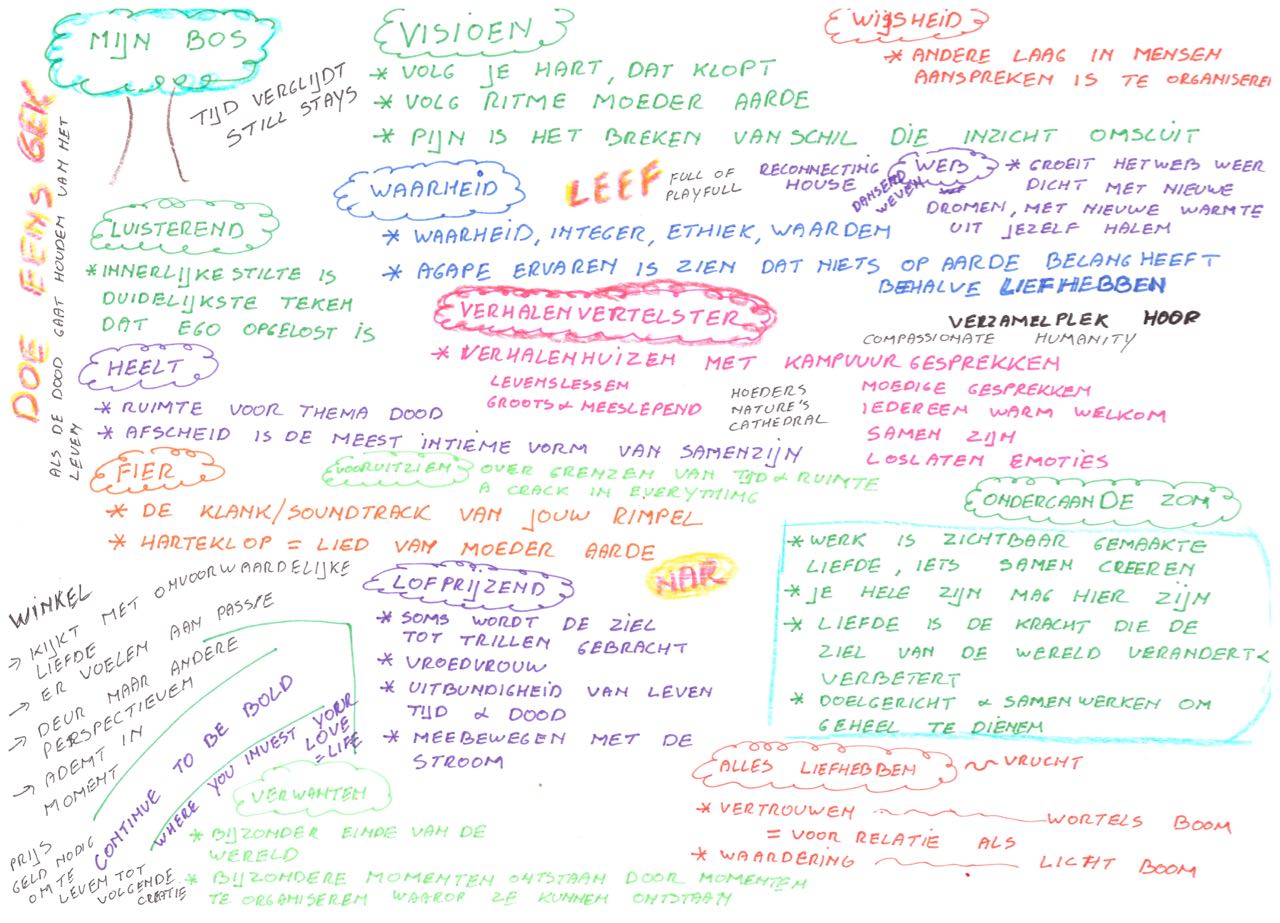 MIJN BOS
TIJD VERGLIJDT
STILL STAYS
DOE EENS GEK
ALS DE DOOD GAAT HOUDEN VAN HET
LEVEN
VISIOEN
* VOLG JE HART, DAT KLOPT
* VOLG RITME MOEDER AARDE
* PIJN IS HET BREKEN VAN SCHIL DIE INZICHT OMSLUIT
WIJSHEID
* ANDERE LAAG IN MENSEN
AANSPREKEN IS TE ORGANISEREN
WAARHEID
LEEF
FULL OF
PLAYFULL
RECONNECTING
HOUSE
WEB
DANSEND
WEVEN
* GROEIT HET WEB WEER
DICHT MET NIEUWE
DROMEN, MET NIEUWE WARMTE
UIT JEZELF HALEN
* WAARHEID, INTEGER, ETHIEK, WAARDEN
* AGAPE ERVAREN IS ZIEN DAT NIETS OP AARDE BELANG HEEFT
BEHALVE LIEFHEBBEN
LUISTEREND
* INNERLIJKE STILTE IS
DUIDELIJKSTE TEKEN
DAT EGO OPGELOST IS
VERHALENVERTELSTER
VERZAMELPLEK HOOR
COMPASSIONATE HUMANITY
* VERHALENHUIZEN MET KAMPVUUR GESPREKKEN
LEVENSLESSEN
GROOTS & MEESLEPEND
HOEDERS
NATURE'S
CATHEDRAL
MOEDIGE GESPREKKEN
IEDEREEN WARM WELKOM
SAMEN ZIJN
LOSLATEN EMOTIES
HEELT
* RUIMTE VOOR THEMA DOOD
* AFSCHEID IS DE MEEST INTIEME VORM VAN SAMENZIJN
FIER
VOORUITZIEN
OVER GRENZEN VAN TIJD & RUIMTE
A CRACK IN EVERYTHING
* DE KLANK/SOUNDTRACK VAN JOUW RIMPEL
* HARTEKLOP = LIED VAN MOEDER AARDE
ONDERGAANDE ZON
* WERK IS ZICHTBAAR GEMAAKTE
LIEFDE, IETS SAMEN CREEREN
* JE HELE ZIJN MAG HIER ZIJN
* LIEFDE IS DE KRACHT DIE DE
ZIEL VAN DE WERELD VERANDERT &
VERBETERT
* DOELGERICHT & SAMENWERKEN OM
GEHEEL TE DIENEN
NAR
LOFPRIJZEND
* SOMS WORDT DE ZIEL
TOT TRILLEN GEBRACHT
* VROEDVROUW
* UITBUNDIGHEID VAN LEVEN
TIJD & DOOD
* MEEBEWEGEN MET DE
STROOM
WINKEL
→ KIJKT MET ONVOORWAARDELIJKE
LIEFDE
→ ER VOELEN AAN PASSIE
→ DEUR NAAR ANDERE
PERSPECTIEVEN
→ ADEMT IN
MOMENT
CONTINUE TO BE BOLD
WHERE YOU INVEST YOUR
LOVE
= LIFE
PRIJS
GELD NODIG
OM TE
LEVEN TOT
VOLGENDE
CREATIE
VERWANTEN
* BIJZONDER EINDE VAN DE
WERELD
* BIJZONDERE MOMENTEN ONTSTAAN DOOR MOMENTEN
TE ORGANISEREN WAAROP ZE KUNNEN ONTSTAAN
ALLES LIEFHEBBEN ~ VRUCHT
* VERTROUWEN WORTELS BOOM
= VOOR RELATIE ALS
* WAARDERING LICHT BOOM